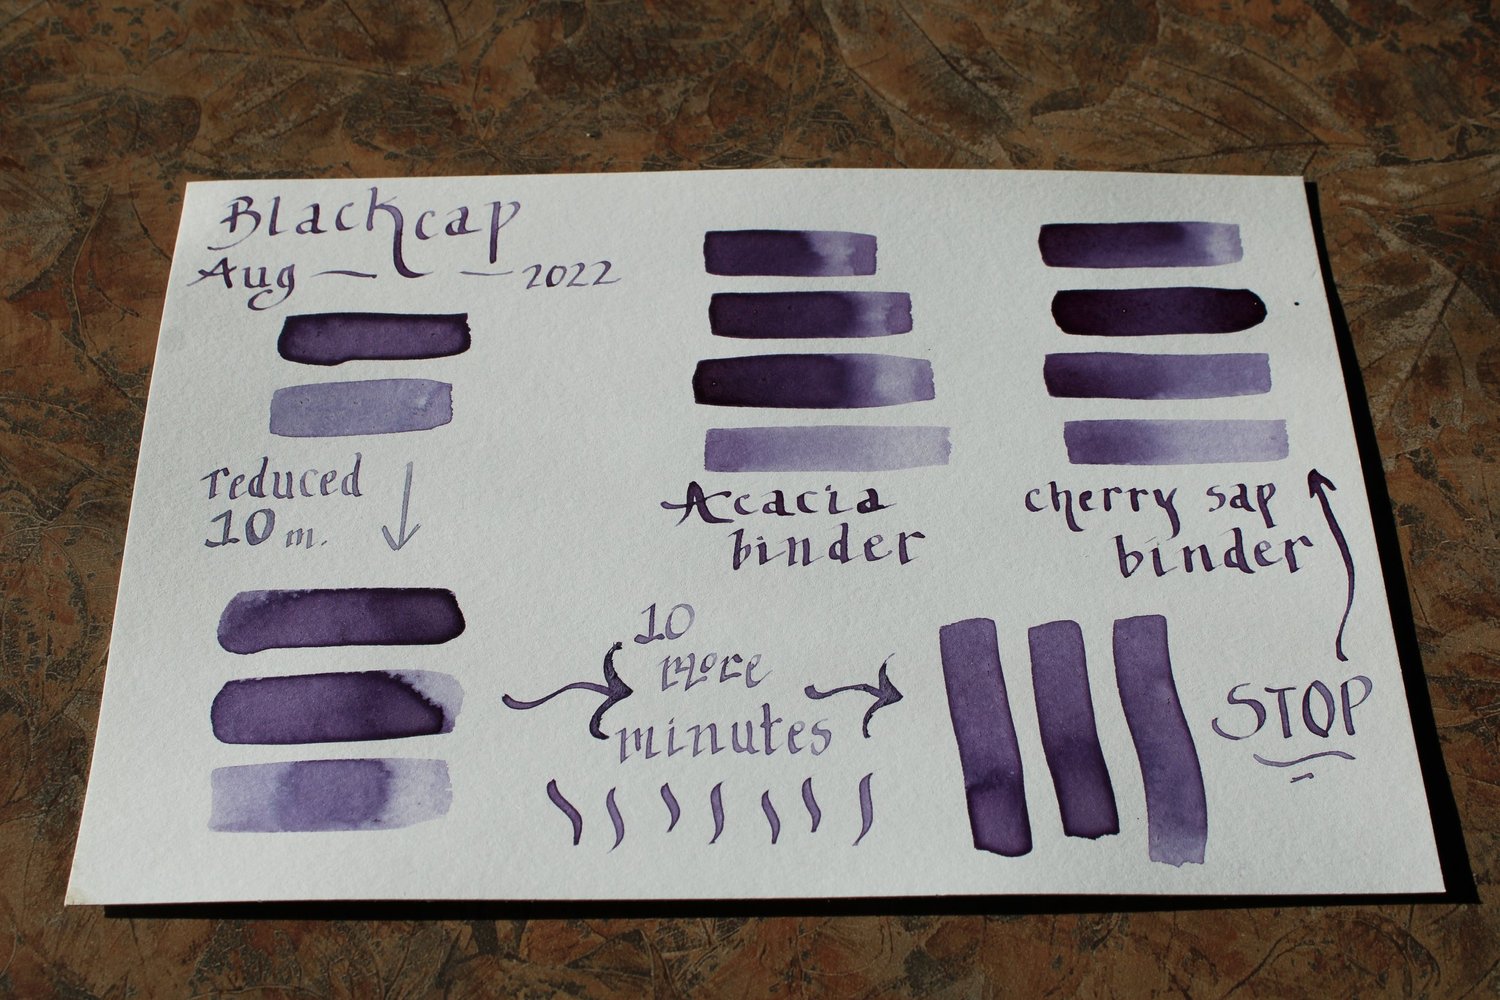 Blackcap
Aug — — 2022
reduced
10 m.
10
more
minutes
Acacia
binder
cherry sap
binder
STOP